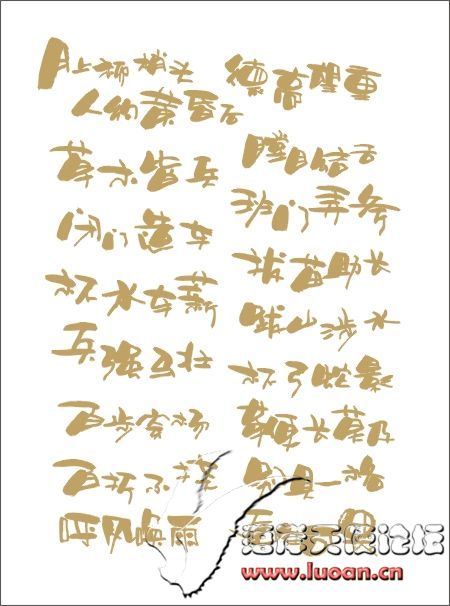 月上柳梢头
人约黄昏后
草木皆兵
闭门造车
杯水车薪
兵强马壮
百步穿杨
百折不挠
呼风唤雨
德高望重
瞠目结舌
班门弄斧
拔苗助长
跋山涉水
杯弓蛇影
鞭长莫及
别具一格
天使论坛
www.luoan.cn